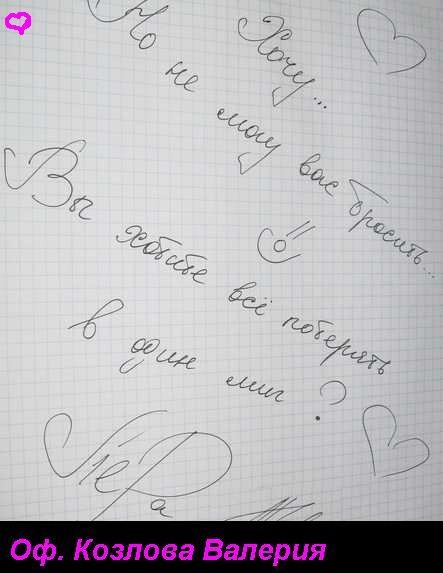 Хочу...
Но не могу вас бросить...
Вы хотите всё потерять
в один миг ?
Лера
Оф. Козлова Валерия